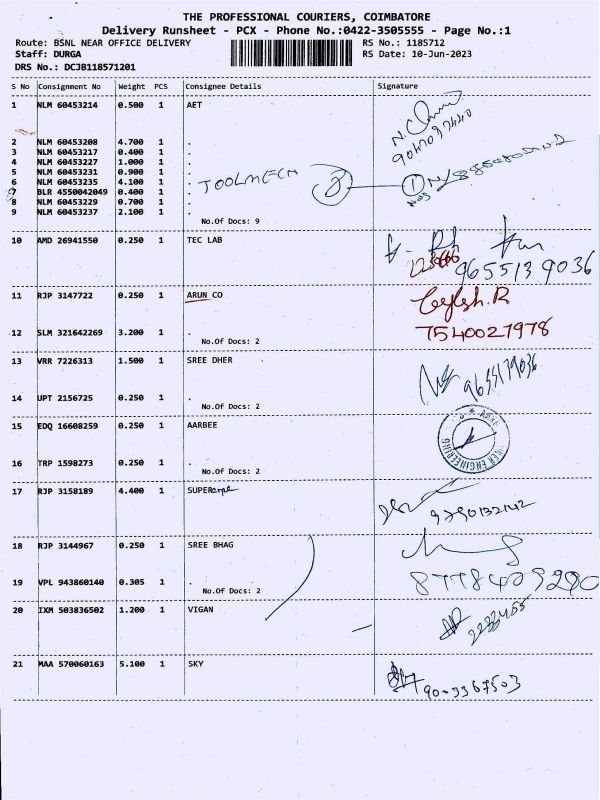 THE PROFESSIONAL COURIERS, COIMBATORE
Delivery Runsheet - PCX - Phone No.:0422-3505555 - Page No.:1
Route: BSNL NEAR OFFICE DELIVERY RS No.: 1185712
Staff: DURGA RS Date: 10-Jun-2023
DRS No.: DCJB118571201
S No Consignment No Weight PCS Consignee Details Signature
1 NLM 60453214 0.500 1 AET
2 NLM 60453208 4.700 1 .
3 NLM 60453217 0.400 1 .
4 NLM 60453227 1.000 1 .
5 NLM 60453231 0.900 1 .
6 NLM 60453235 4.100 1 . TOOLMECH
7 BLR 4550042049 0.400 1 .
8 NLM 60453229 0.700 1 .
9 NLM 60453237 2.100 1 .
No.Of Docs: 9
10 AMD 26941550 0.250 1 TEC LAB
9655139036
11 RJP 3147722 0.250 1 ARUN CO
12 SLM 321642269 3.200 1 . 7540027978
No.Of Docs: 2
13 VRR 7226313 1.500 1 SREE DHER
9655139036
14 UPT 2156725 0.250 1 .
No.Of Docs: 2
15 EDQ 16608259 0.250 1 AARBEE
16 TRP 1598273 0.250 1 .
No.Of Docs: 2
17 RJP 3158189 4.400 1 SUPER
9790132142
18 RJP 3144967 0.250 1 SREE BHAG
19 VPL 943860140 0.305 1 .
No.Of Docs: 2
20 IXM 503836502 1.200 1 VIGAN
21 MAA 570060163 5.100 1 SKY